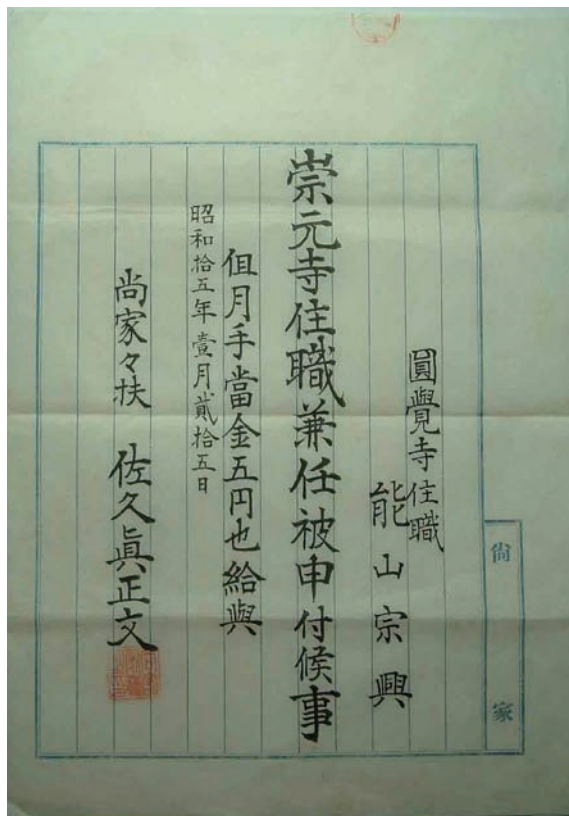 圓覺寺住職
能山宗興
崇元寺住職兼任被申付候事
但月手當金五円也給與
昭和拾五年壹月貳拾五日
尚家々扶 佐久眞正文
尚家